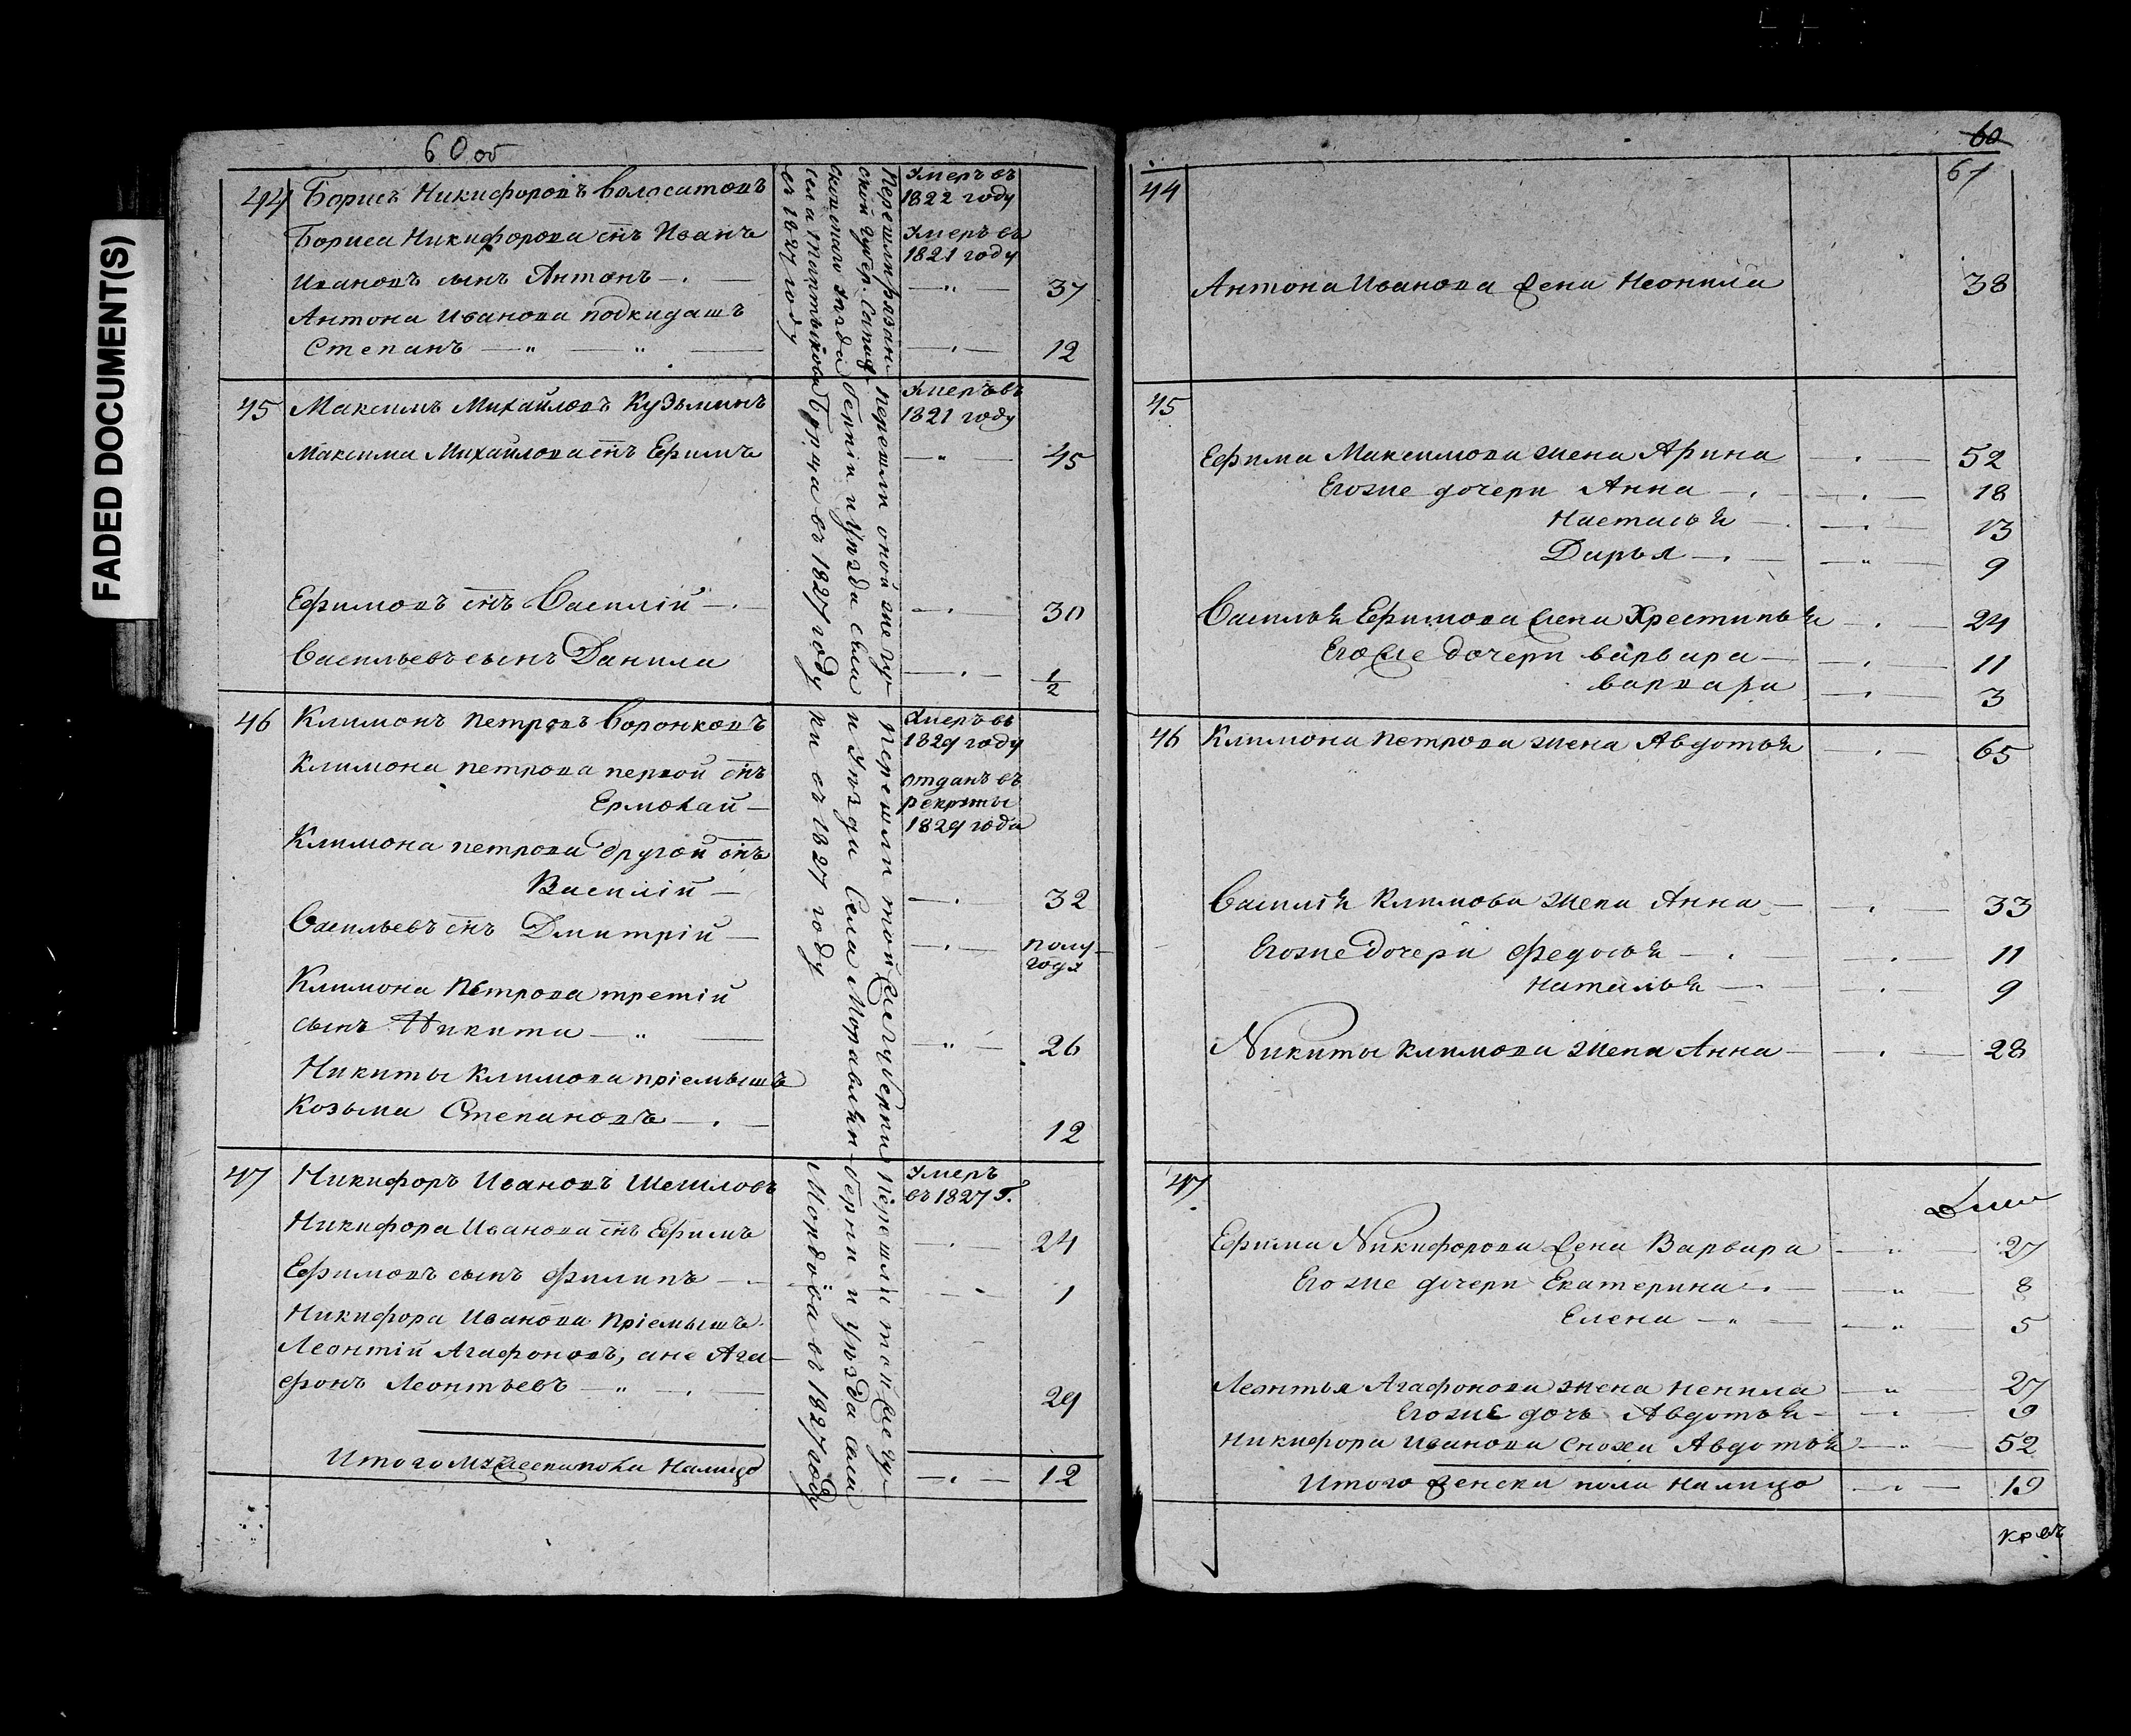 FADED DOCUMENT(S)
60 об
44 Борисъ Никифоровъ Волосатовъ
Умеръ въ
1822 году
Бориса Никифорова снъ Иванъ
Умеръ въ
1821 году
Ивановъ сынъ Антонъ 37
Антона Иванова подкидашъ
Степанъ 12
Перешли
ской губер. Сапож-
скова уезда
села
въ 1827 году
45 Максимъ Михайловъ Кузьминъ
Умеръ въ
1821 году
Максима Михайлова снъ Ефимъ 45
Ефимовъ снъ Василій 30
Васильевъ сынъ Данила 1/2
перешли оной же гу-
берніи и уезда села
Борца въ 1827 году
46 Климонъ Петровъ Воронковъ
Умеръ въ
1829 году
Климона Петрова первой снъ
Ермолай
отданъ въ
рекруты
1829 года
Климона Петрова другой снъ
Василій 32
Васильевъ снъ Дмитрій
полу-
года
Климона Петрова третій
сынъ Никита 26
Никиты Климова пріемышъ
Козьма Степановъ 12
Перешли той же губерніи
и уезда села Моравлян-
ки въ 1827 году
47 Никифоръ Ивановъ Шешловъ
Умеръ
въ 1827 г.
Никифора Иванова снъ Ефимъ 24
Ефимовъ сынъ Филипъ 1
Никифора Иванова пріемышъ
Леонтій Агафоновъ, а не Ага-
фонъ Леонтьевъ 29
Перешли той же гу-
берніи и уезда села
Мордова въ 1827 году
Итого мужеска пола налицо 12
60
61
44
Антона Иванова жена Неонила 38
45
Ефима Максимова жена Арина 52
Егоже дочери Анна 18
Настасья 13
Дарья 9
Василья Ефимова жена Хрестинья 24
Егоже дочери Варвара 11
Варвара 3
46 Климона Петрова жена Авдотья 65
Василія Климова жена Анна 33
Егоже дочери Федосья 11
Наталья 9
Никиты Климова жена Анна 28
47
Ефима Никифорова жена Варвара 27
Егоже дочери Екатерина 8
Елена 5
Леонтья Агафонова жена Ненила 27
Егоже дочь Авдотья 9
Никифора Иванова сноха Авдотья 52
Итого женска пола налицо 19